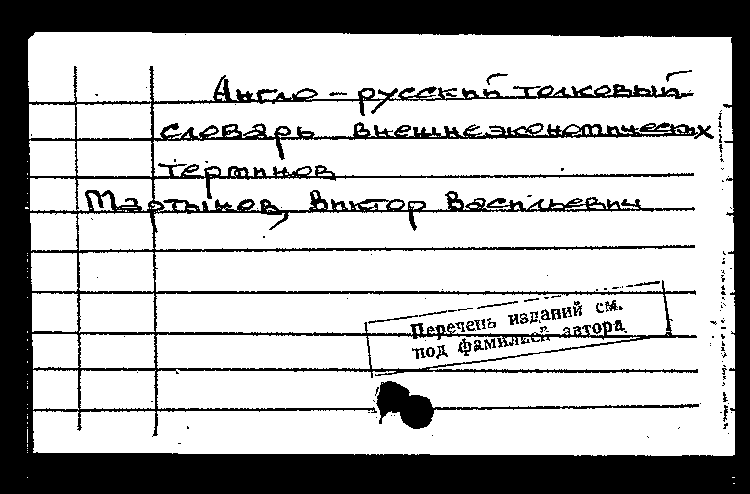 Англо-русский толковый
словарь внешнеэкономических
терминов
Мартынов, Виктор Васильевич
Перечень изданий см.
под фамилией автора